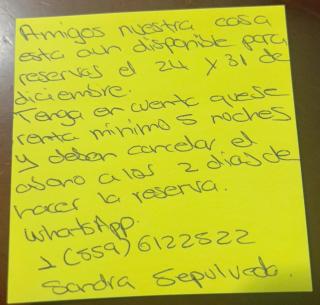 Amigos nuestra casa
esta aun disponible para
reservas el 24 y 31 de
diciembre.
Tenga en cuenta que se
renta minimo 5 noches
y deben cancelar el
abono a los 2 dias de
hacer la reserva.
WhatsApp.
1 (559) 6122522
Sandra Sepulveda.